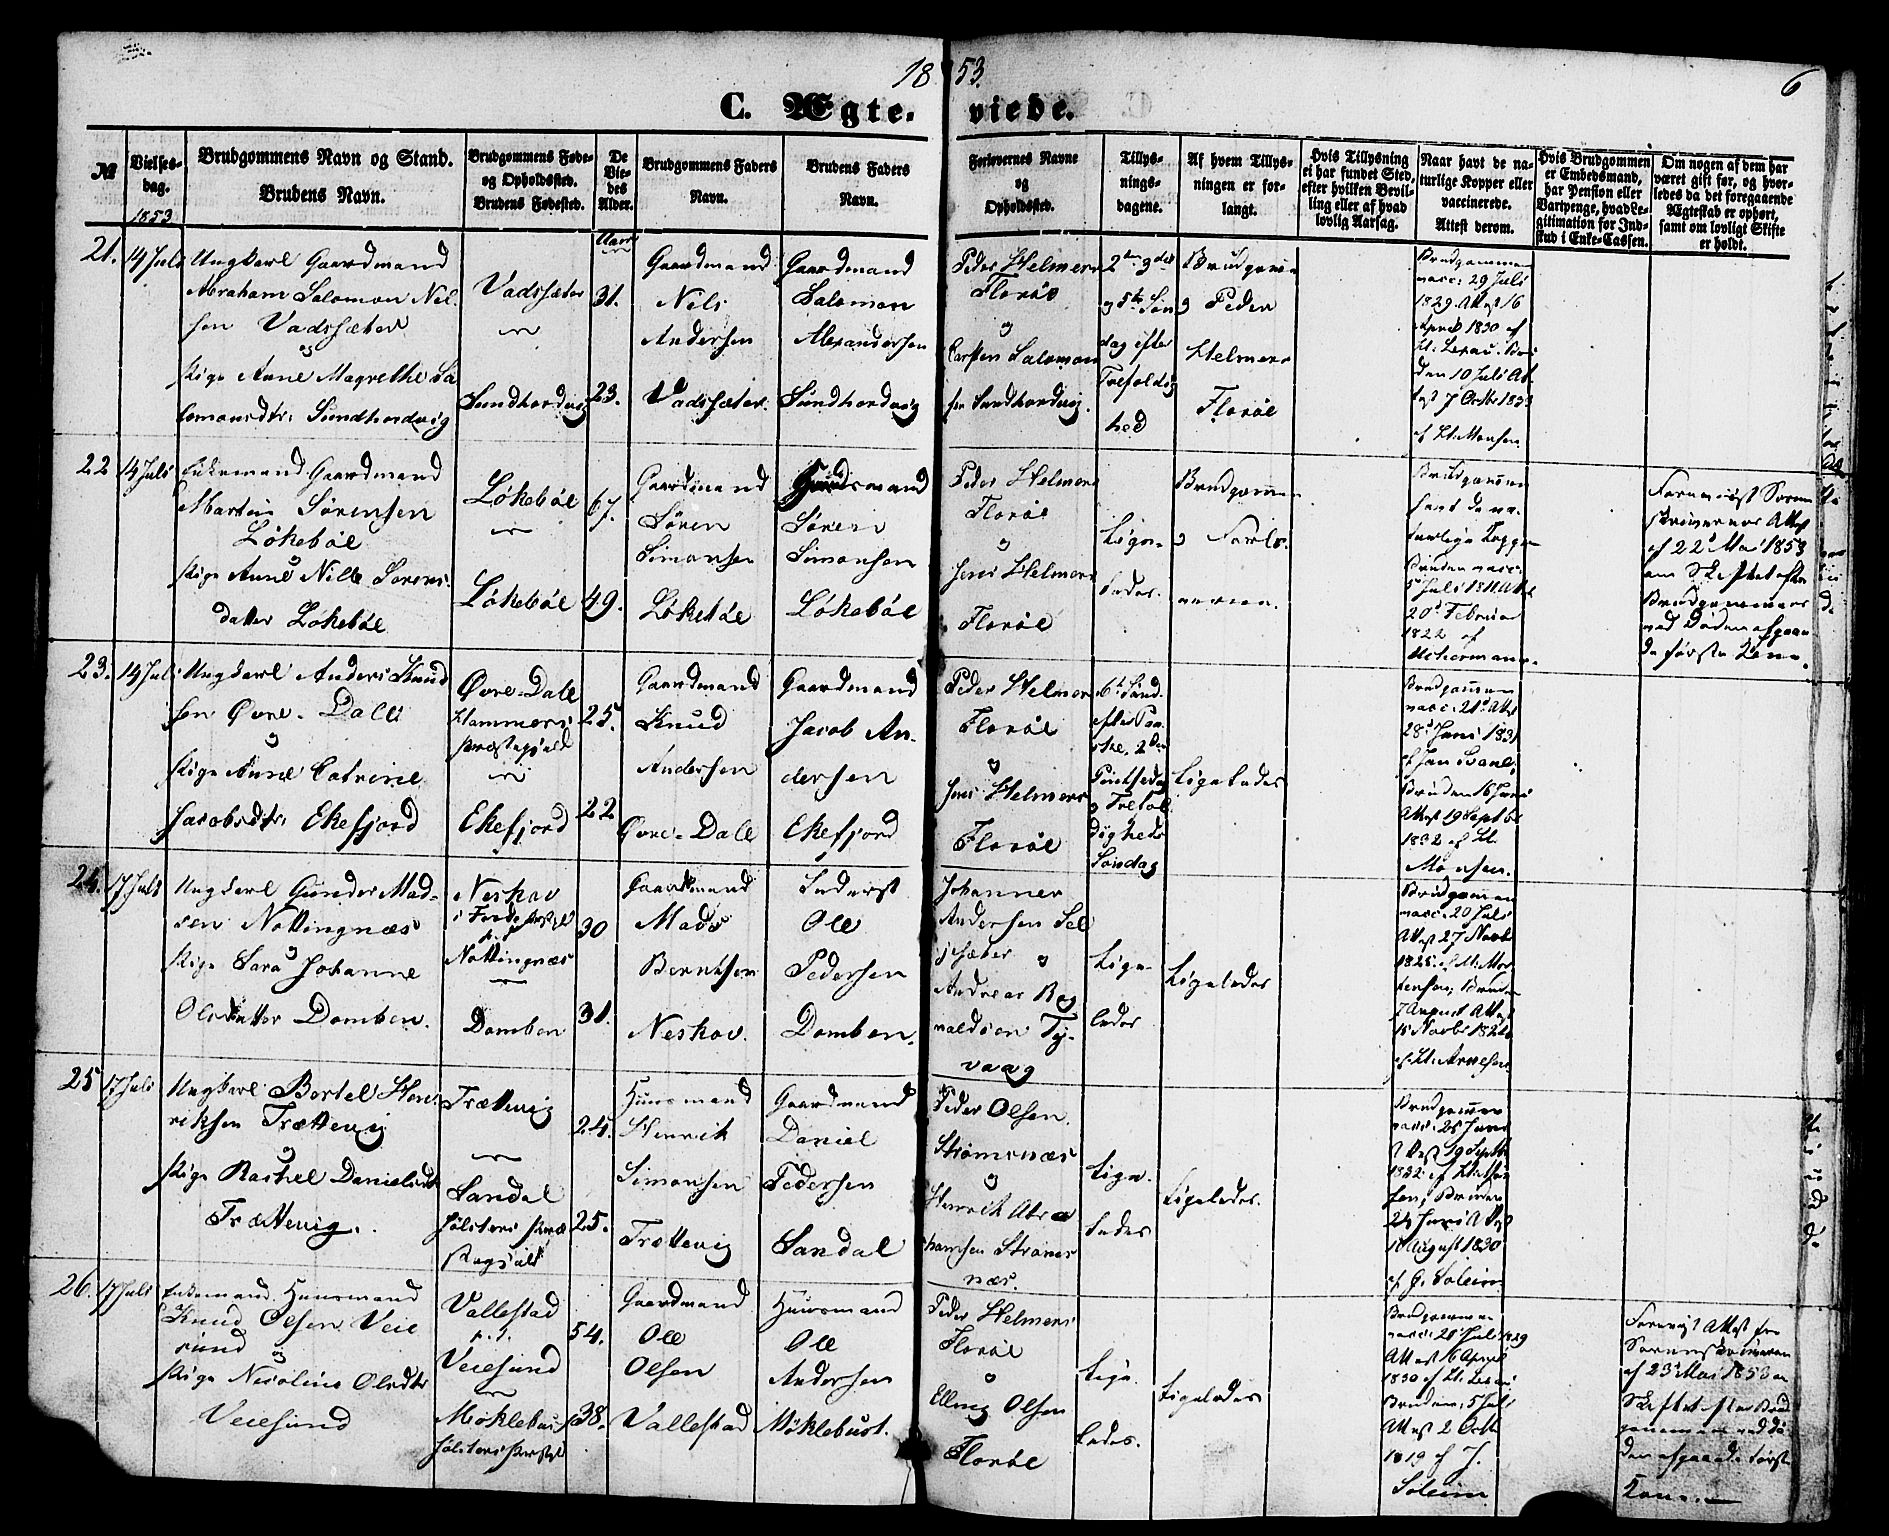 1853.
6
C. Ægteviede.
№
Vielsesdag.
1853
Brudgommens Navn og Stand.
Brudens Navn.
Brudgommens Føde- og Opholdssted.
Brudens Fødested.
De Viedes Alder.
Brudgommens Faders Navn.
Brudens Faders Navn.
Forlovernes Navne og Opholdssted.
Tillysningsdagene.
Af hvem Tillysningen er forlangt.
Hvis Tillysning ei har fundet Sted, efter hvilken Bevilling eller af hvad lovlig Aarsag.
Naar havt de naturlige Kopper eller vaccinerede. Attest derom.
Hvis Brudgommen er Embedsmand, har Pension eller Vartpenge, hvad Legitimation for Indskud i Enke-Cassen.
Om nogen af dem har været gift før, og hvorledes da det foregaaende Ægteskab er ophørt, samt om lovligt Skifte er holdt.
21. 14 Juli
Ungkarl Gaardmand
Abraham Salomon Nil-
sen Vadsæter
og
Pige Anne Magrethe Sa
lomonsdtr. Sundhordvig
Vadsæter
Sundhordvig
Aar
31.
23.
Gaardmand
Nils
Andersen
Vadsæter.
Gaardmand
Salomon
Alexandersen
Sundhordvig
Peder Helmers
Florøe
og
Carsten Salomon
sen Sundhordvig.
2den 3die
og 5te Søn
dag efter
Trefoldig
hed
Brudgomme
og Peder
Helmers
Florøe
Brudgommen
vacc. 29 Juli
1829. Attest 16
April 1830 af
den 10 Juli At
test 7 Octbr 1833
af Kl. Monsen
22 14 Juli
Enkemand Gaardmand
Martin Sørensen
Løkebøe
og
Pige Anne Nille Sørens-
datter Løkebøe
Løkebøe
Løkebøe
67.
49.
Gaardmand
Søren
Simonsen
Løkebøe
Gaardmand
Søren
Simonsen
Løkebøe
Peder Helmers
Florøe
og
Jens Helmers
Florøe
Lige-
ledes.
Brudgomme
og Forlo-
verne.
Brudgommen
havt de na
turlige Kopper
Bruden vacc.
5 Juli 1811 Attest
20de Februar
1822 af
Forevist Soren
skriverens Attest
af 22de Mai 1853
om Skiftet efter
Brudgommens
ved Døden afgaae
de første Kone.
23. 14 Juli
Ungkarl Anders Knud
sen Øvre-Dale
og
Pige Anne Catrine
Jacobsdtr. Ekefjord
Øvre-Dale
Hammers
Præstegjeld
Ekefjord
25.
22
Gaardmand
Knud
Andersen
Øvre-Dale
Gaardmand
Jacob An-
dersen
Ekefjord
Peder Helmers
Florøe
og
Jens Helmers
Florøe
6te Sønd.
efter Paa-
ske, 2den
Pintsedag
og Trefol
digheds
Søndag
Ligeledes
Brudgommen
vacc. 21de Attest
28de Juni 1831
af Jan Svane;
Bruden 16 Juni
Attest 19 Septbr
1832 af Kl.
Monsen.
24. 17 Juli
Ungkarl Gunder Mad-
sen Nottingnæs
og
Pige Sara Johanne
Olsdatter Domben.
Neskov
i Førde Præstgjd
p. t.
Nottingnæs
Domben
30
31.
Gaardmand
Mads
Berntsen
Neskov.
Inderst
Ole
Pedersen
Domben.
Johannes
Andersen Sel
jesæter og
Andreas Rag
naldsen Ty-
vaag
Lige-
ledes
Ligeledes
Brudgommen
vacc. 20 Juli
Attest 27 Novbr
1825 af M. Mor
tensen; Bruden
7 August Attest
18 Novbr 1826
af Kl. Arnesen
25 17 Juli
Ungkarl Bertel Hen-
riksen Trættevig
og
Pige Rachel Danielsdtr
Trættevig.
Trættevig
Sandal
Jølsters Præ
stegjeld
24.
25.
Huusmand
Henrik
Simonsen
Trættevig
Gaardmand
Daniel
Pedersen
Sandal
Peder Olsen
Strømsnæs
og
Henrik Abra
hamsen Strøms
næs.
Lige-
ledes
Ligeledes.
Brudgommen
vacc. 25 Juni
Attest 19 Septbr
1832 af Kl. Mon
sen; Bruden
24 Juni Attest
10 August 1830
af G. Soleim
26. 17 Juli
Enkemand Huusmand
Knud Olsen Veie
sund og
Pige Nicoline Olsdtr
Veiesund
Vallestad
p. t.
Veiesund
Møklebust
Jølsters Præstgjd
54.
38.
Gaardmand
Ole
Olsen
Vallestad
Huusmand
Ole
Andersen
Møklebust.
Peder Helmers
Florøe
og
Elling Olsen
Florøe
Lige-
ledes.
Ligeledes
Brudgommen
vacc. 28 Juli 1829
Attest 16 April
1830 af
Bruden, 5 Juli
Attest 2 Octbr
1819 af J.
Soleim
Forevist Attest fra
Sorenskriveren
af 23de Mai 1853 om
Skiftet efter Brud
gommens ved Dø-
den afgaaede første
Kone.